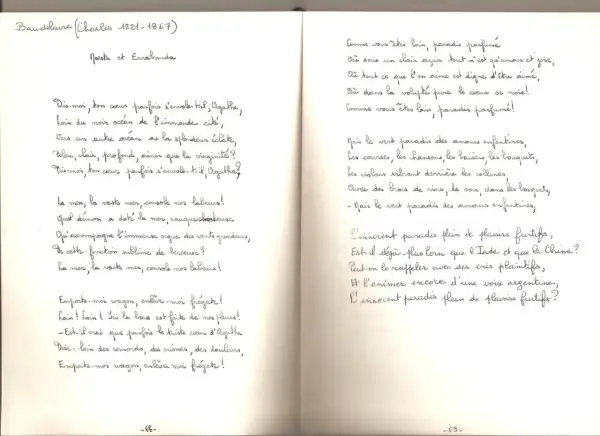 Baudelaire (Charles 1821-1867)
Moesta et Errabunda
Dis-moi, ton cœur parfois s'envole-t-il, Agathe,
Loin du noir océan de l'immonde cité,
Vers un autre océan où la splendeur éclate,
Bleu, clair, profond, ainsi que la virginité ?
Dis-moi, ton cœur parfois s'envole-t-il Agathe ?
La mer, la vaste mer, console nos labeurs !
Quel démon a doté la mer, rauque chanteuse
Qu'accompagne l'immense orgue des vents grondeurs,
De cette fonction sublime de berceuse ?
La mer, la vaste mer, console nos labeurs !
Emporte-moi wagon, enlève-moi frégate !
Loin ! Loin ! Ici la boue est faite de nos pleurs !
- Est-il vrai que parfois le triste cœur d'Agathe
Dise : loin des remords, des crimes, des douleurs,
Emporte-moi wagon, enlève moi frégate !
-68-
Comme vous êtes loin, paradis parfumé
Où sous un clair azur tout n'est qu'amour et joie,
Où tout ce que l'on aime est digne d'être aimé,
Où dans la volupté pure le cœur se noie !
Comme vous êtes loin, paradis parfumé !
Mais le vert paradis des amours enfantines,
Les courses, les chansons, les baisers, les bouquets,
Les violons vibrant derrière les collines
Avec les brocs de vins, le soir, dans les bosquets,
- Mais le vert paradis des amours enfantines,
L'innocent paradis plein de plaisirs furtifs,
Est-il déjà plus loin que l'Inde et que la Chine ?
Peut-on le rappeler avec des cris plaintifs,
Et l'animer encore d'une voix argentine,
L'innocent paradis plein de plaisirs furtifs ?
-69-